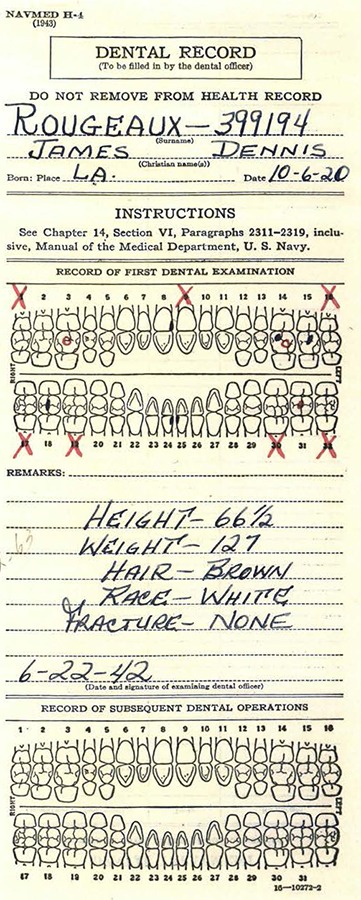 NAVMED H-4
(1943)
DENTAL RECORD
(To be filled in by the dental officer)
DO NOT REMOVE FROM HEALTH RECORD
ROUGEAUX—399194
(Surname)
JAMES DENNIS
(Christian name(s))
Born: Place LA. Date 10-6-20
INSTRUCTIONS
See Chapter 14, Section VI, Paragraphs 2311–2319, inclu-
sive, Manual of the Medical Department, U. S. Navy.
RECORD OF FIRST DENTAL EXAMINATION
1 2 3 4 5 6 7 8 9 10 11 12 13 14 15 16
RIGHT LEFT
17 18 19 20 21 22 23 24 25 26 27 28 29 30 31 32
REMARKS:
HEIGHT– 66½
WEIGHT– 127
HAIR – BROWN
RACE– WHITE
FRACTURE– NONE
6-22-42
(Date and signature of examining dental officer)
RECORD OF SUBSEQUENT DENTAL OPERATIONS
1 2 3 4 5 6 7 8 9 10 11 12 13 14 15 16
RIGHT LEFT
17 18 19 20 21 22 23 24 25 26 27 28 29 30 31
16—10272-2